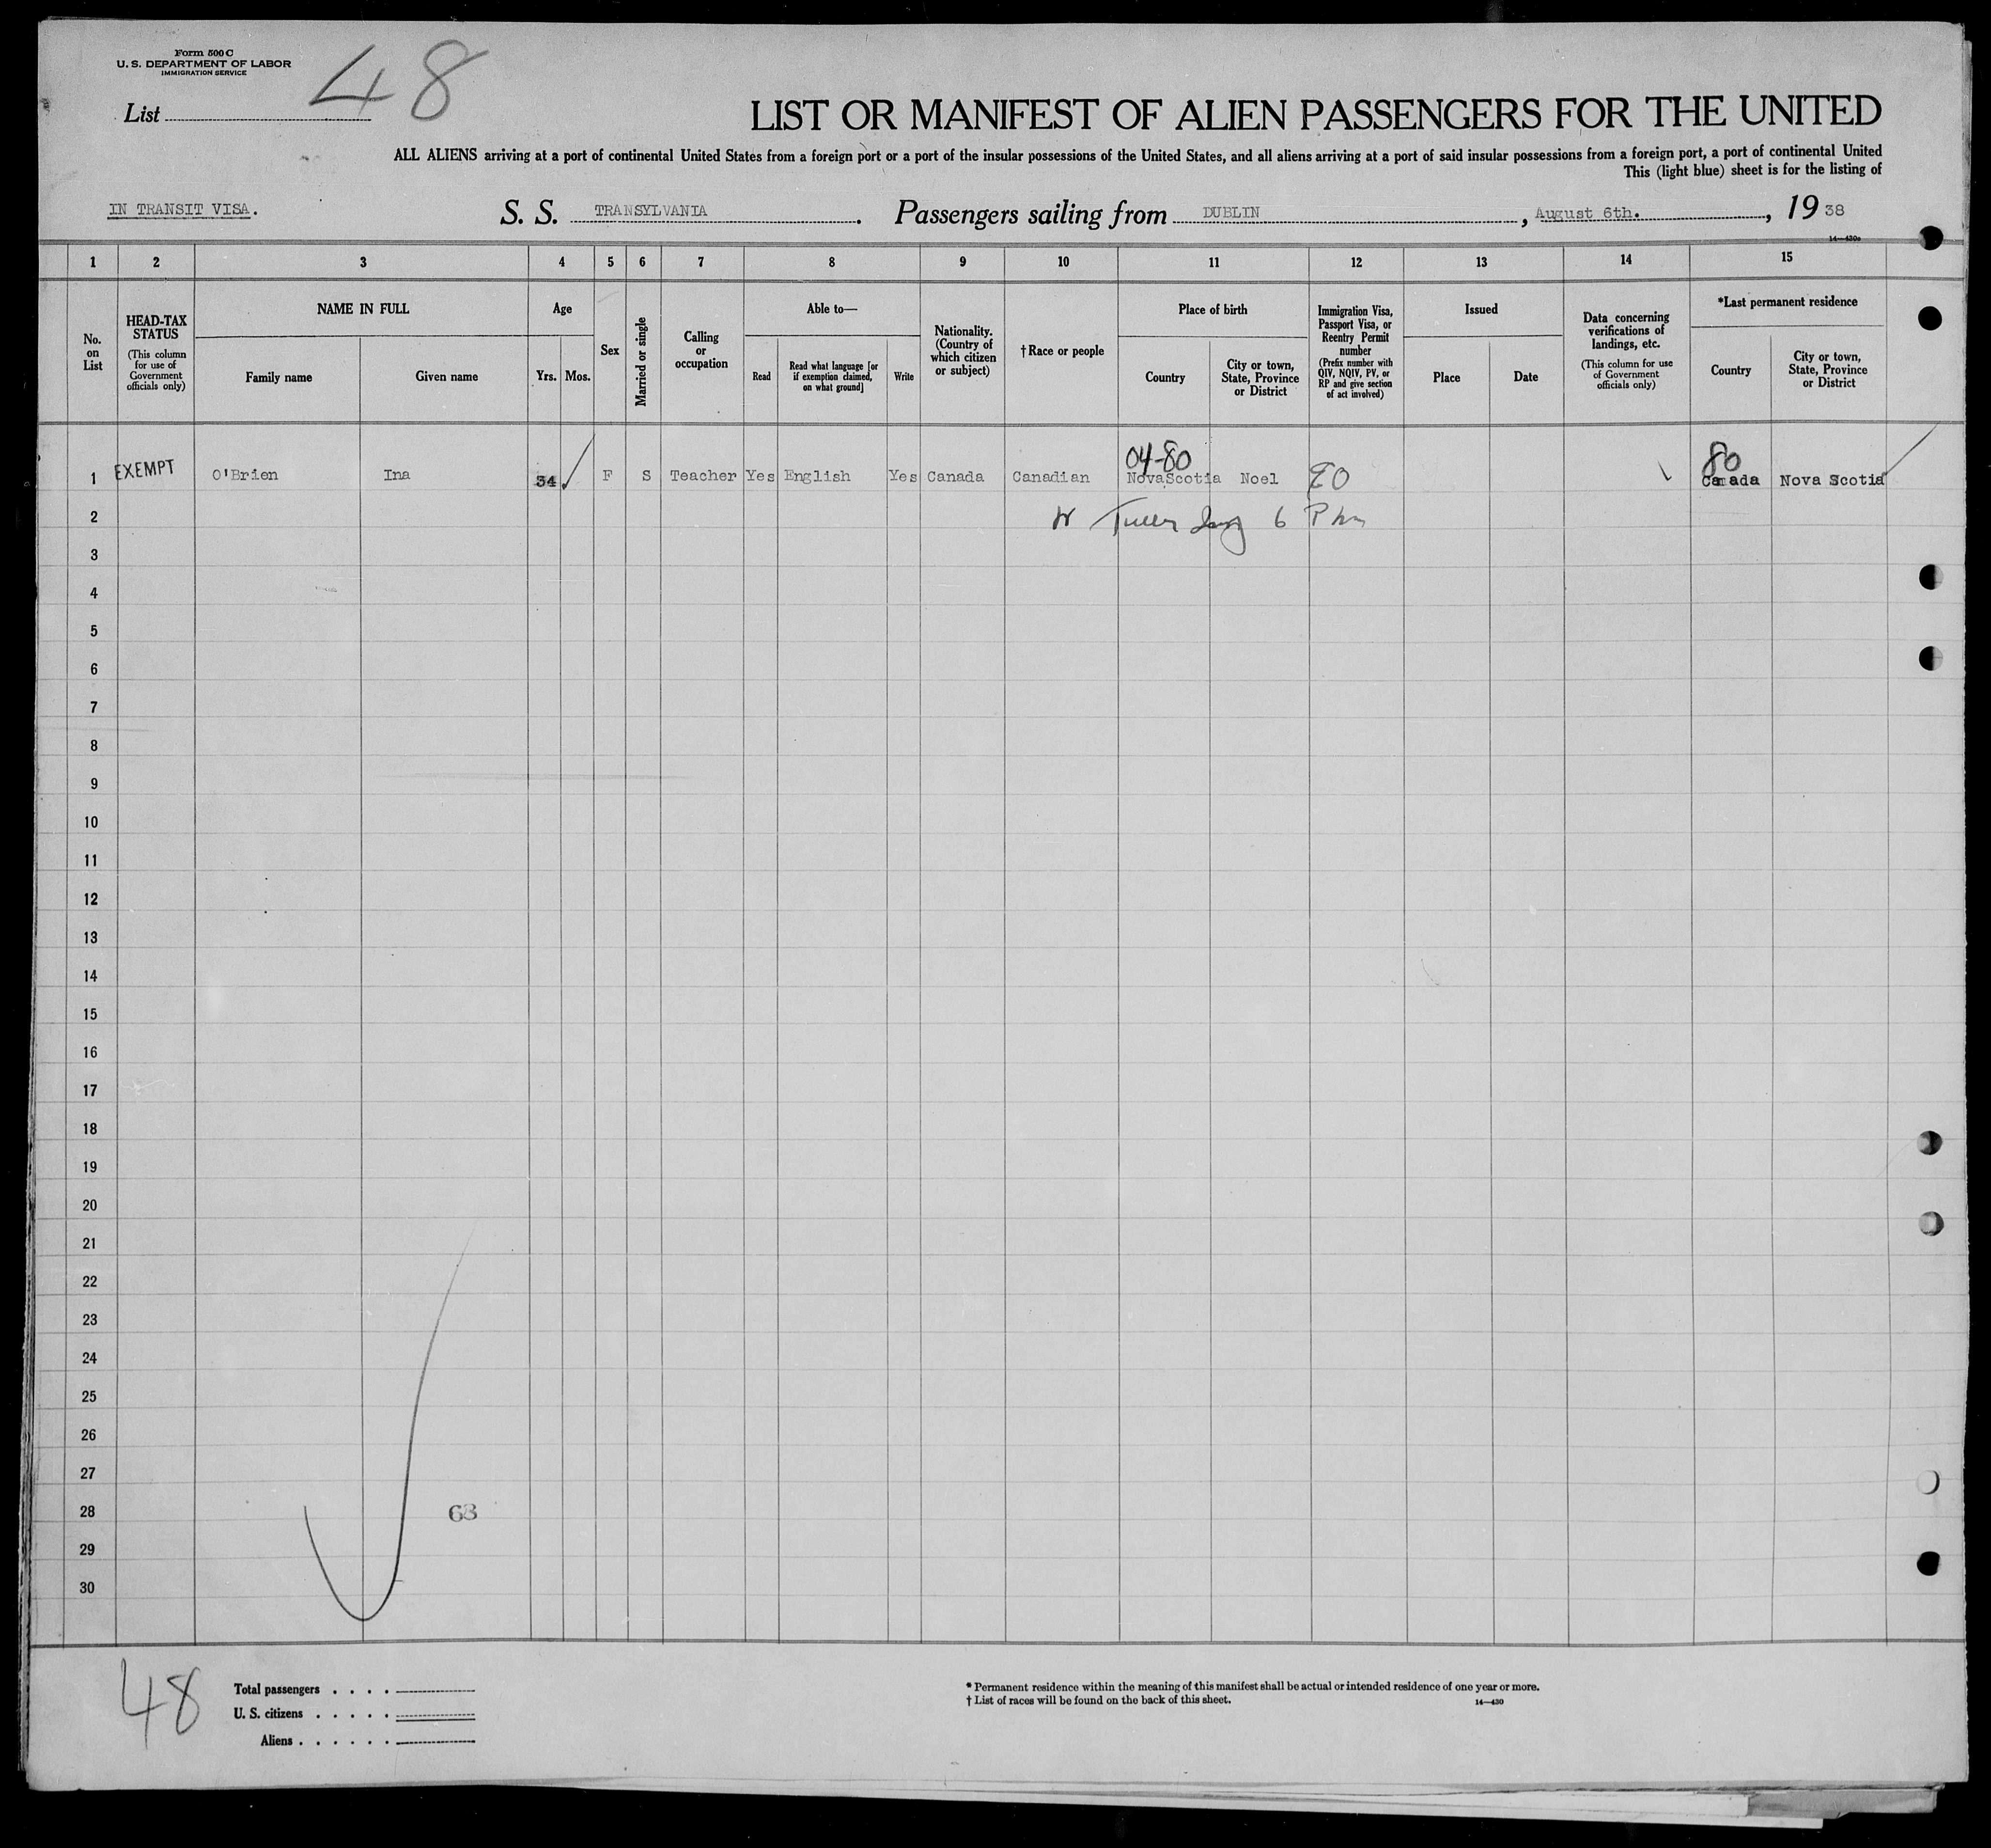 Form 500 C
U. S. DEPARTMENT OF LABOR
IMMIGRATION SERVICE
List 48
LIST OR MANIFEST OF ALIEN PASSENGERS FOR THE UNITED
ALL ALIENS arriving at a port of continental United States from a foreign port or a port of the insular possessions of the United States, and all aliens arriving at a port of said insular possessions from a foreign port, a port of continental United
This (light blue) sheet is for the listing of
IN TRANSIT VISA. S. S. TRANSYLVANIA. Passengers sailing from DUBLIN, August 6th., 19 38
1 2 3 4 5 6 7 8 9 10 11 12 13 14 15
No. on List
HEAD-TAX STATUS (This column for use of Government officials only)
NAME IN FULL
Family name Given name
Age
Yrs. Mos.
Sex
Married or single
Calling or occupation
Able to—
Read
Read what language [or if exemption claimed, on what ground]
Write
Nationality. (Country of which citizen or subject)
† Race or people
Place of birth
Country
City or town, State, Province or District
Immigration Visa, Passport Visa, or Reentry Permit number (Prefix number with QIV, NQIV, PV, or RP and give section of act involved)
Issued
Place Date
Data concerning verifications of landings, etc. (This column for use of Government officials only)
*Last permanent residence
Country
City or town, State, Province or District
04-80 80
1 EXEMPT O'Brien Ina 34 F S Teacher Yes English Yes Canada Canadian NovaScotia Noel Canada Nova Scotia
2 6 Pm
3
4
5
6
7
8
9
10
11
12
13
14
15
16
17
18
19
20
21
22
23
24
25
26
27
28 63
29
30
48
Total passengers . . . .
U. S. citizens . . . . .
Aliens . . . . . .
* Permanent residence within the meaning of this manifest shall be actual or intended residence of one year or more.
† List of races will be found on the back of this sheet. 14—430